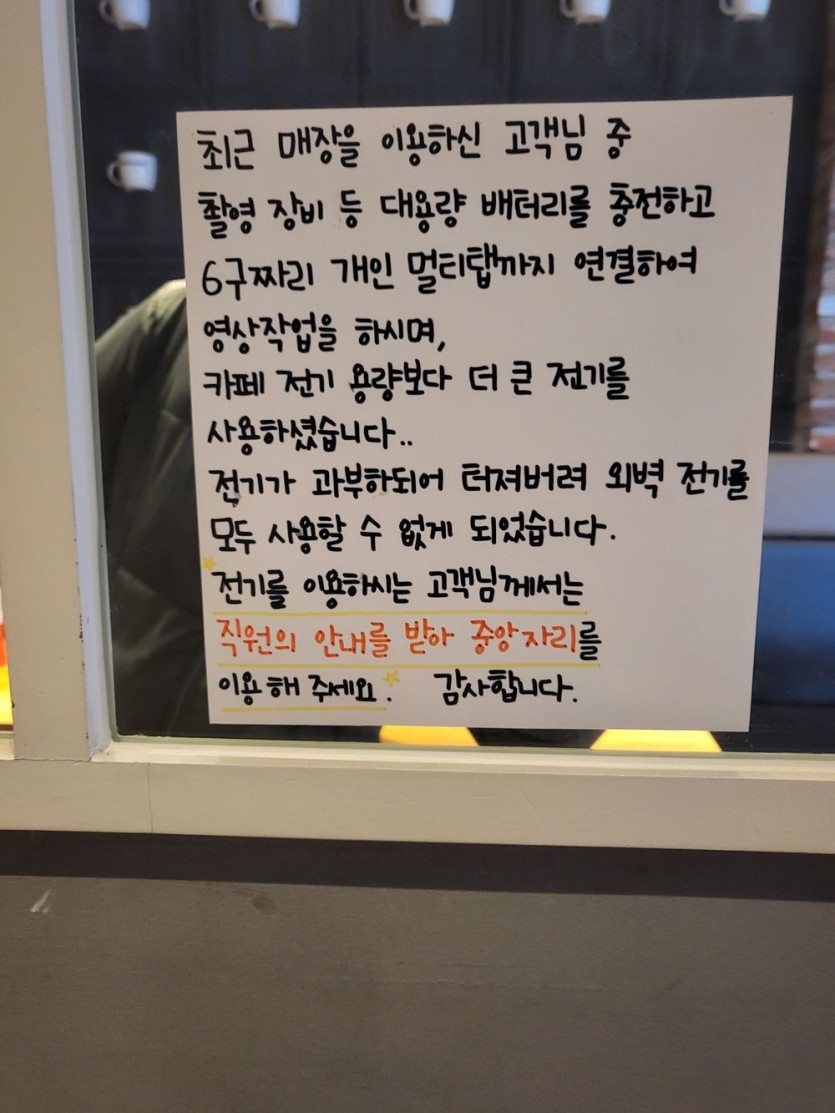 최근 매장을 이용하신 고객님 중
촬영 장비 등 대용량 배터리를 충전하고
6구짜리 개인 멀티탭까지 연결하여
영상작업을 하시며,
카페 전기 용량보다 더 큰 전기를
사용하셨습니다..
전기가 과부하되어 터져버려 외벽 전기를
모두 사용할 수 없게 되었습니다.
전기를 이용하시는 고객님께서는
직원의 안내를 받아 중앙자리를
이용해 주세요. 감사합니다.